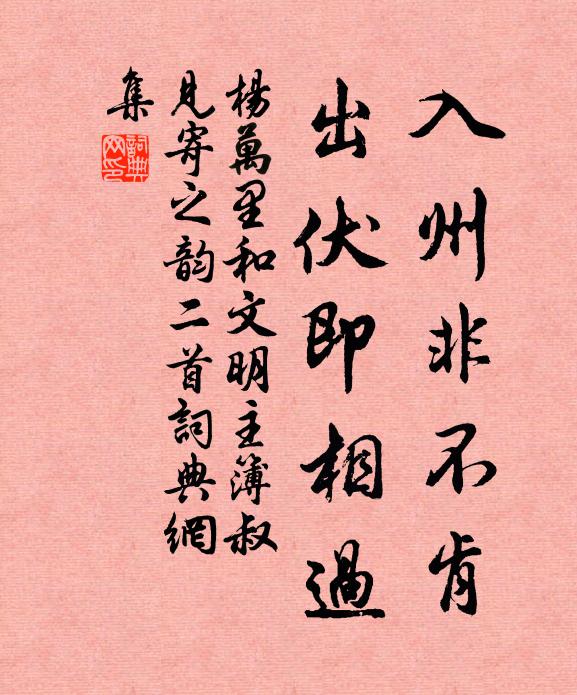 入州非不肯
出伏即相過
楊萬里和文明主簿叔
見寄之韵二首詞典網
集
詞典
网印